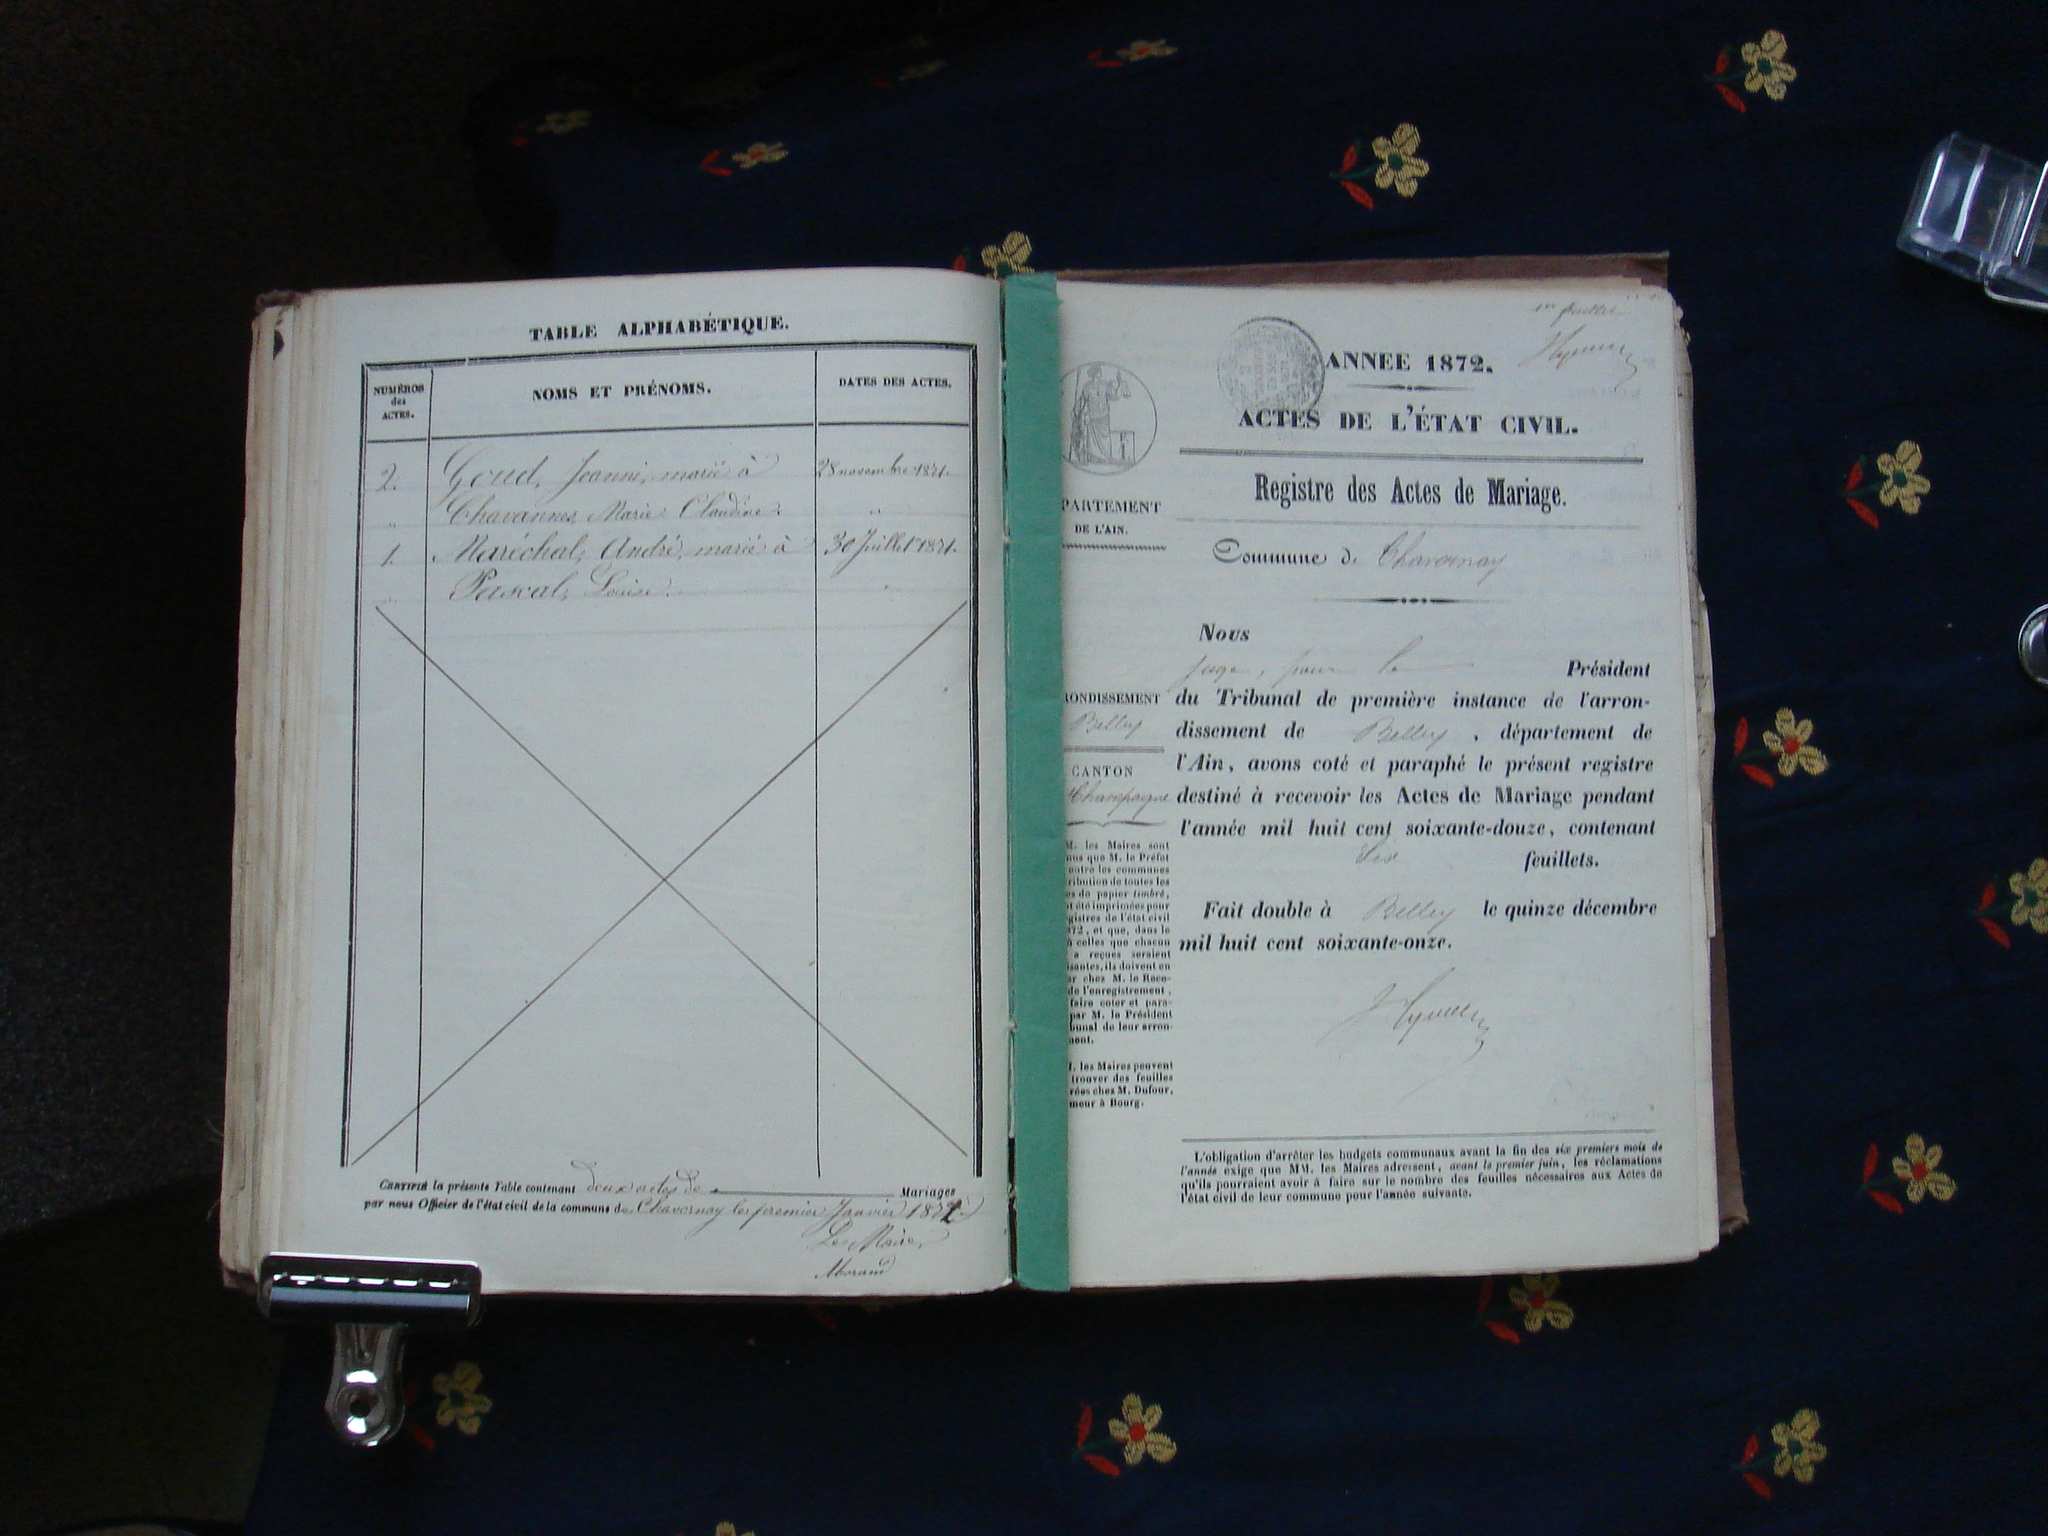 TABLE ALPHABÉTIQUE.
NUMÉROS
des
ACTES.
NOMS ET PRÉNOMS.
DATES DES ACTES.
2. Goud, Joanni, marié à 28 novembre 1871.
" Chavannes Marie Claudine. "
1. Maréchal, André, marié à 30 Juillet 1871.
" Pascal, Louise. "
CERTIFIÉ la présente Table contenant deux actes de Mariages
par nous Officier de l'état civil de la commune de Chavornay le premier Janvier 1872
Le Maire,
Morand
1er feuillet
ANNÉE 1872.
ACTES DE L'ÉTAT CIVIL.
Registre des Actes de Mariage.
PARTEMENT
DE L'AIN.
Commune de Chavornay
Nous
juge, pour le Président
RONDISSEMENT
Belley
CANTON
Champagne
du Tribunal de première instance de l'arron-
dissement de Belley, département de
l'Ain, avons coté et paraphé le présent registre
destiné à recevoir les Actes de Mariage pendant
l'année mil huit cent soixante-douze, contenant
Six feuillets.
Fait double à Belley le quinze décembre
mil huit cent soixante-onze.
M. les Maires sont
nus que M. le Préfet
entre les communes
ribution de toutes les
es de papier timbré,
t été imprimées pour
gistres de l'état civil
872, et que, dans le
à celles que chacun
a reçues seraient
isantes, ils doivent en
er chez M. le Rece-
de l'enregistrement,
faire coter et para-
par M. le Président
bunal de leur arron-
ment.
M. les Maires peuvent
trouver des feuilles
rées chez M. Dufour,
meur à Bourg.
L'obligation d'arrêter les budgets communaux avant la fin des six premiers mois de
l'année exige que MM. les Maires adressent, avant le premier juin, les réclamations
qu'ils pourraient avoir à faire sur le nombre des feuilles nécessaires aux Actes de
l'état civil de leur commune pour l'année suivante.